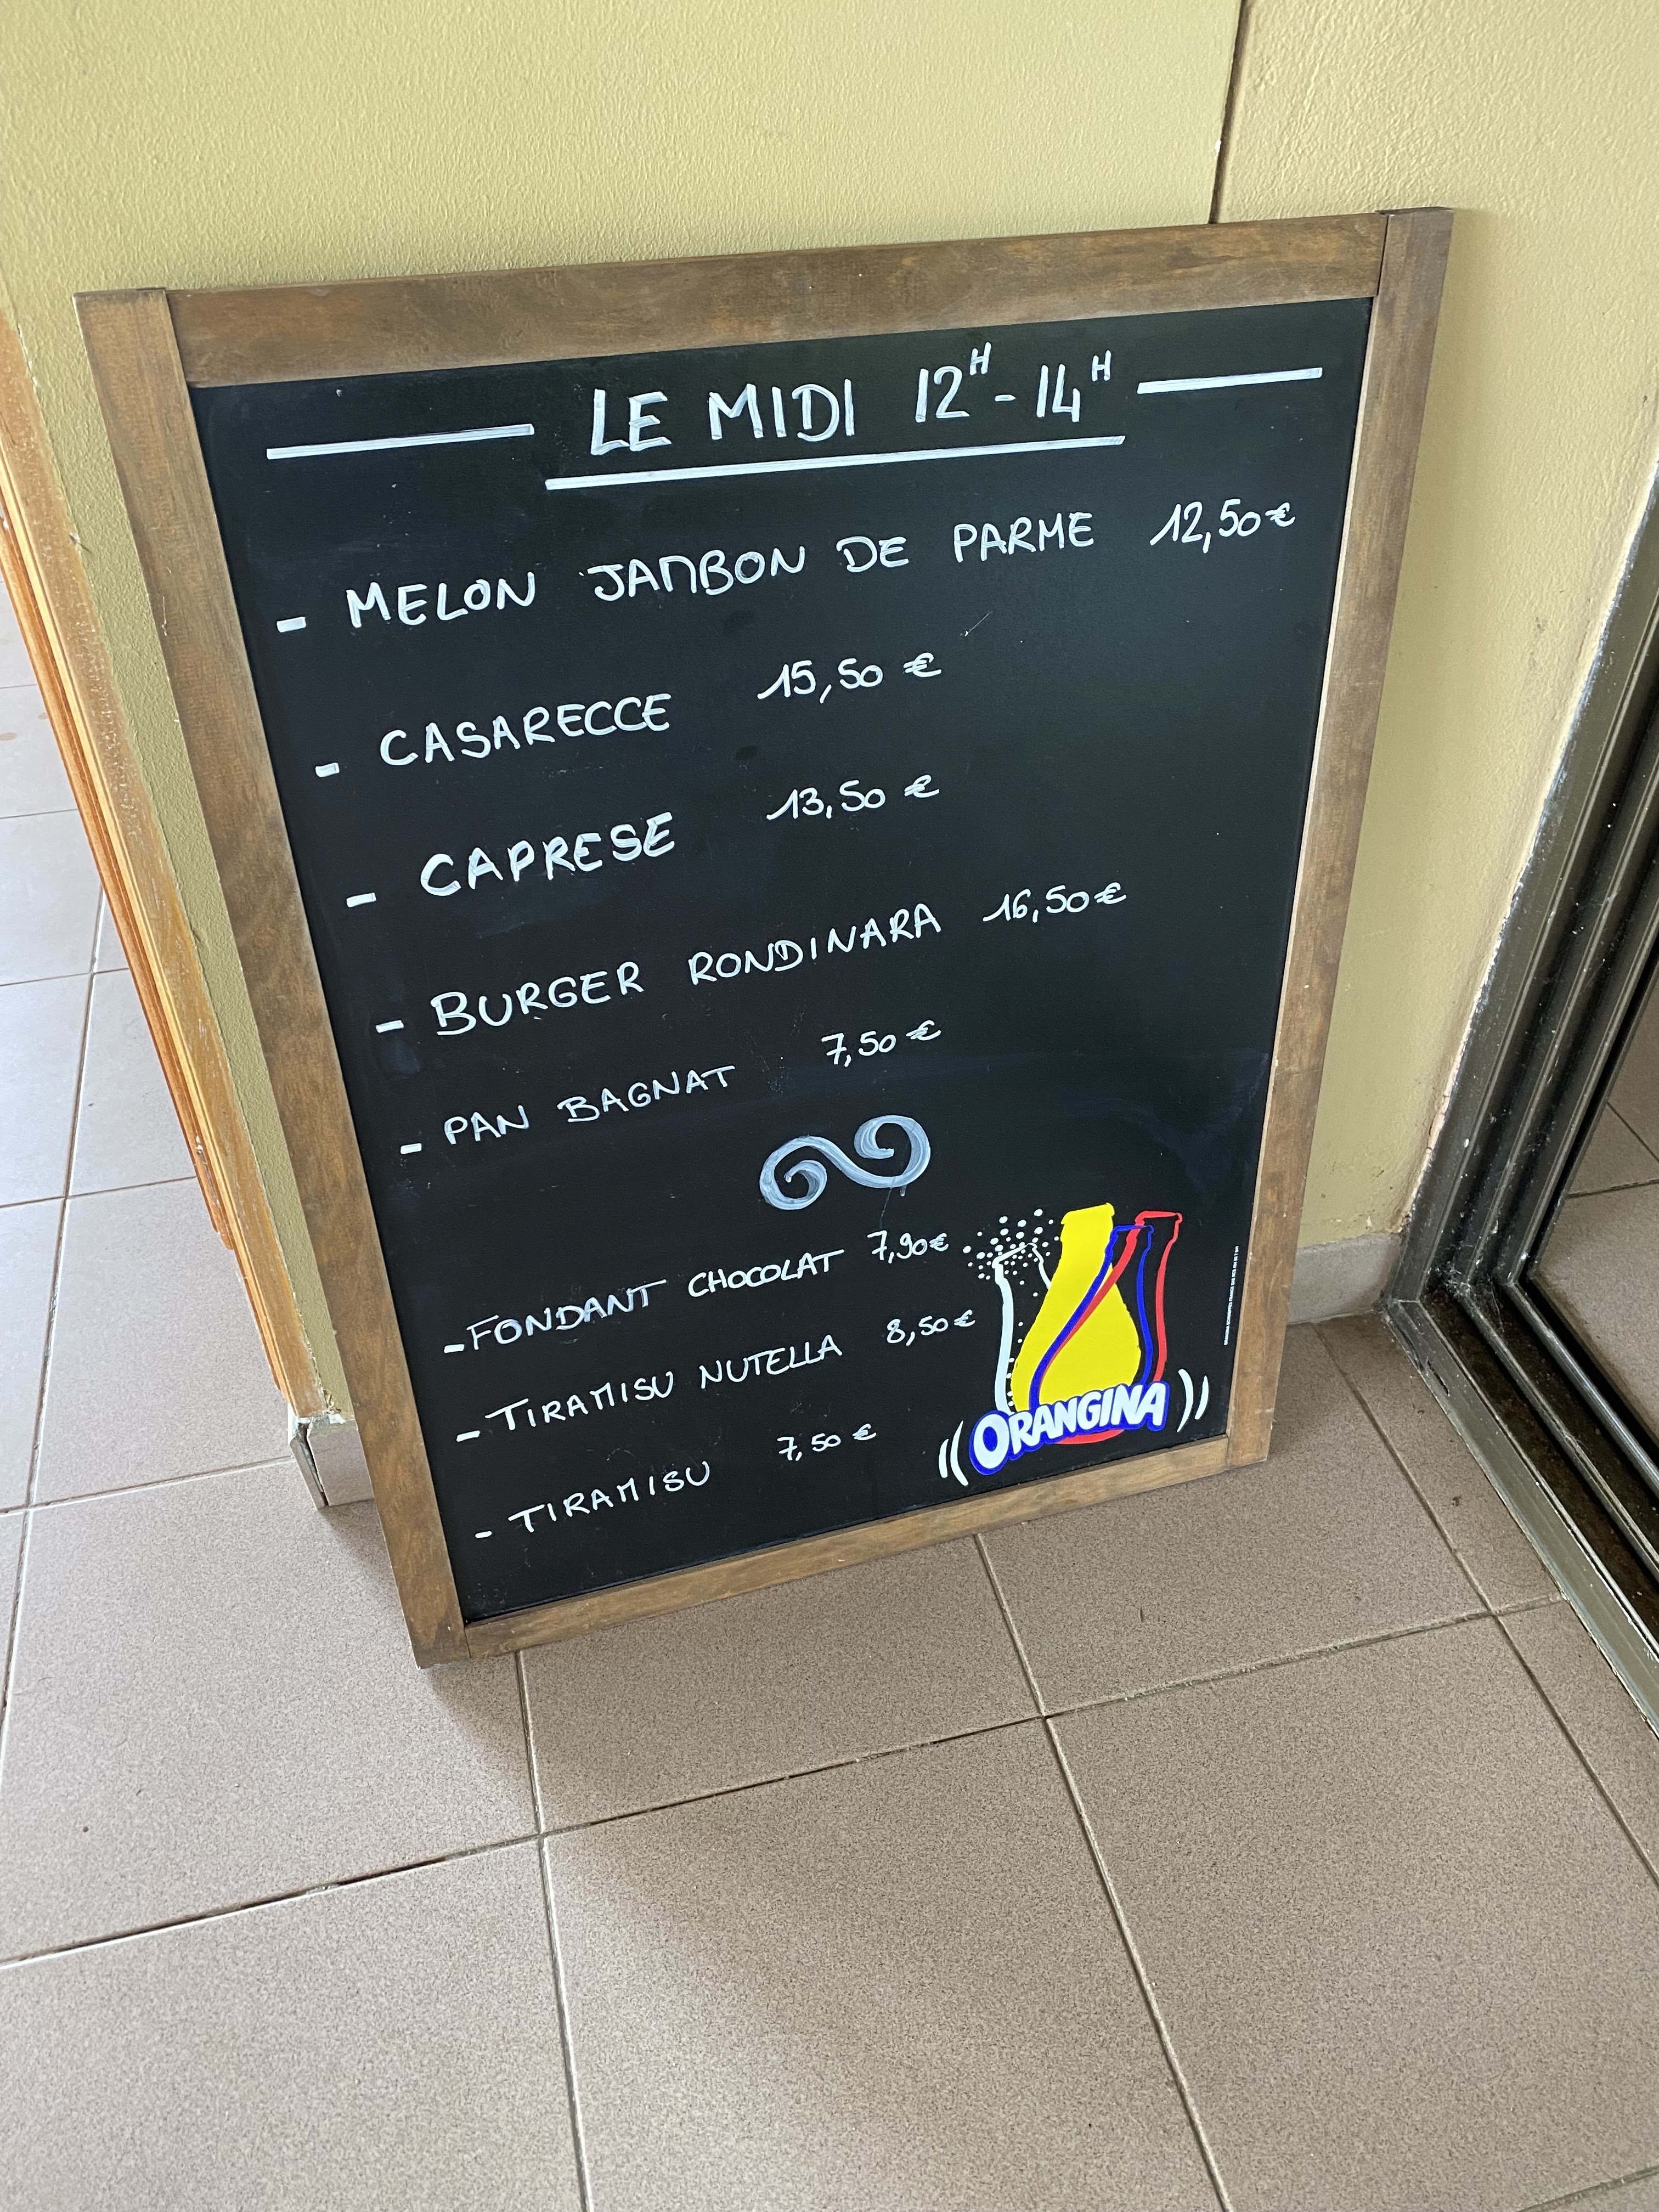 LE MIDI 12H - 14H
- MELON JAMBON DE PARME 12,50€
- CASARECCE 15,50 €
- CAPRESE 13,50 €
- BURGER RONDINARA 16,50€
- PAN BAGNAT 7,50 €
- FONDANT CHOCOLAT 7,90€
- TIRAMISU NUTELLA 8,50€
- TIRAMISU 7,50 €
ORANGINA